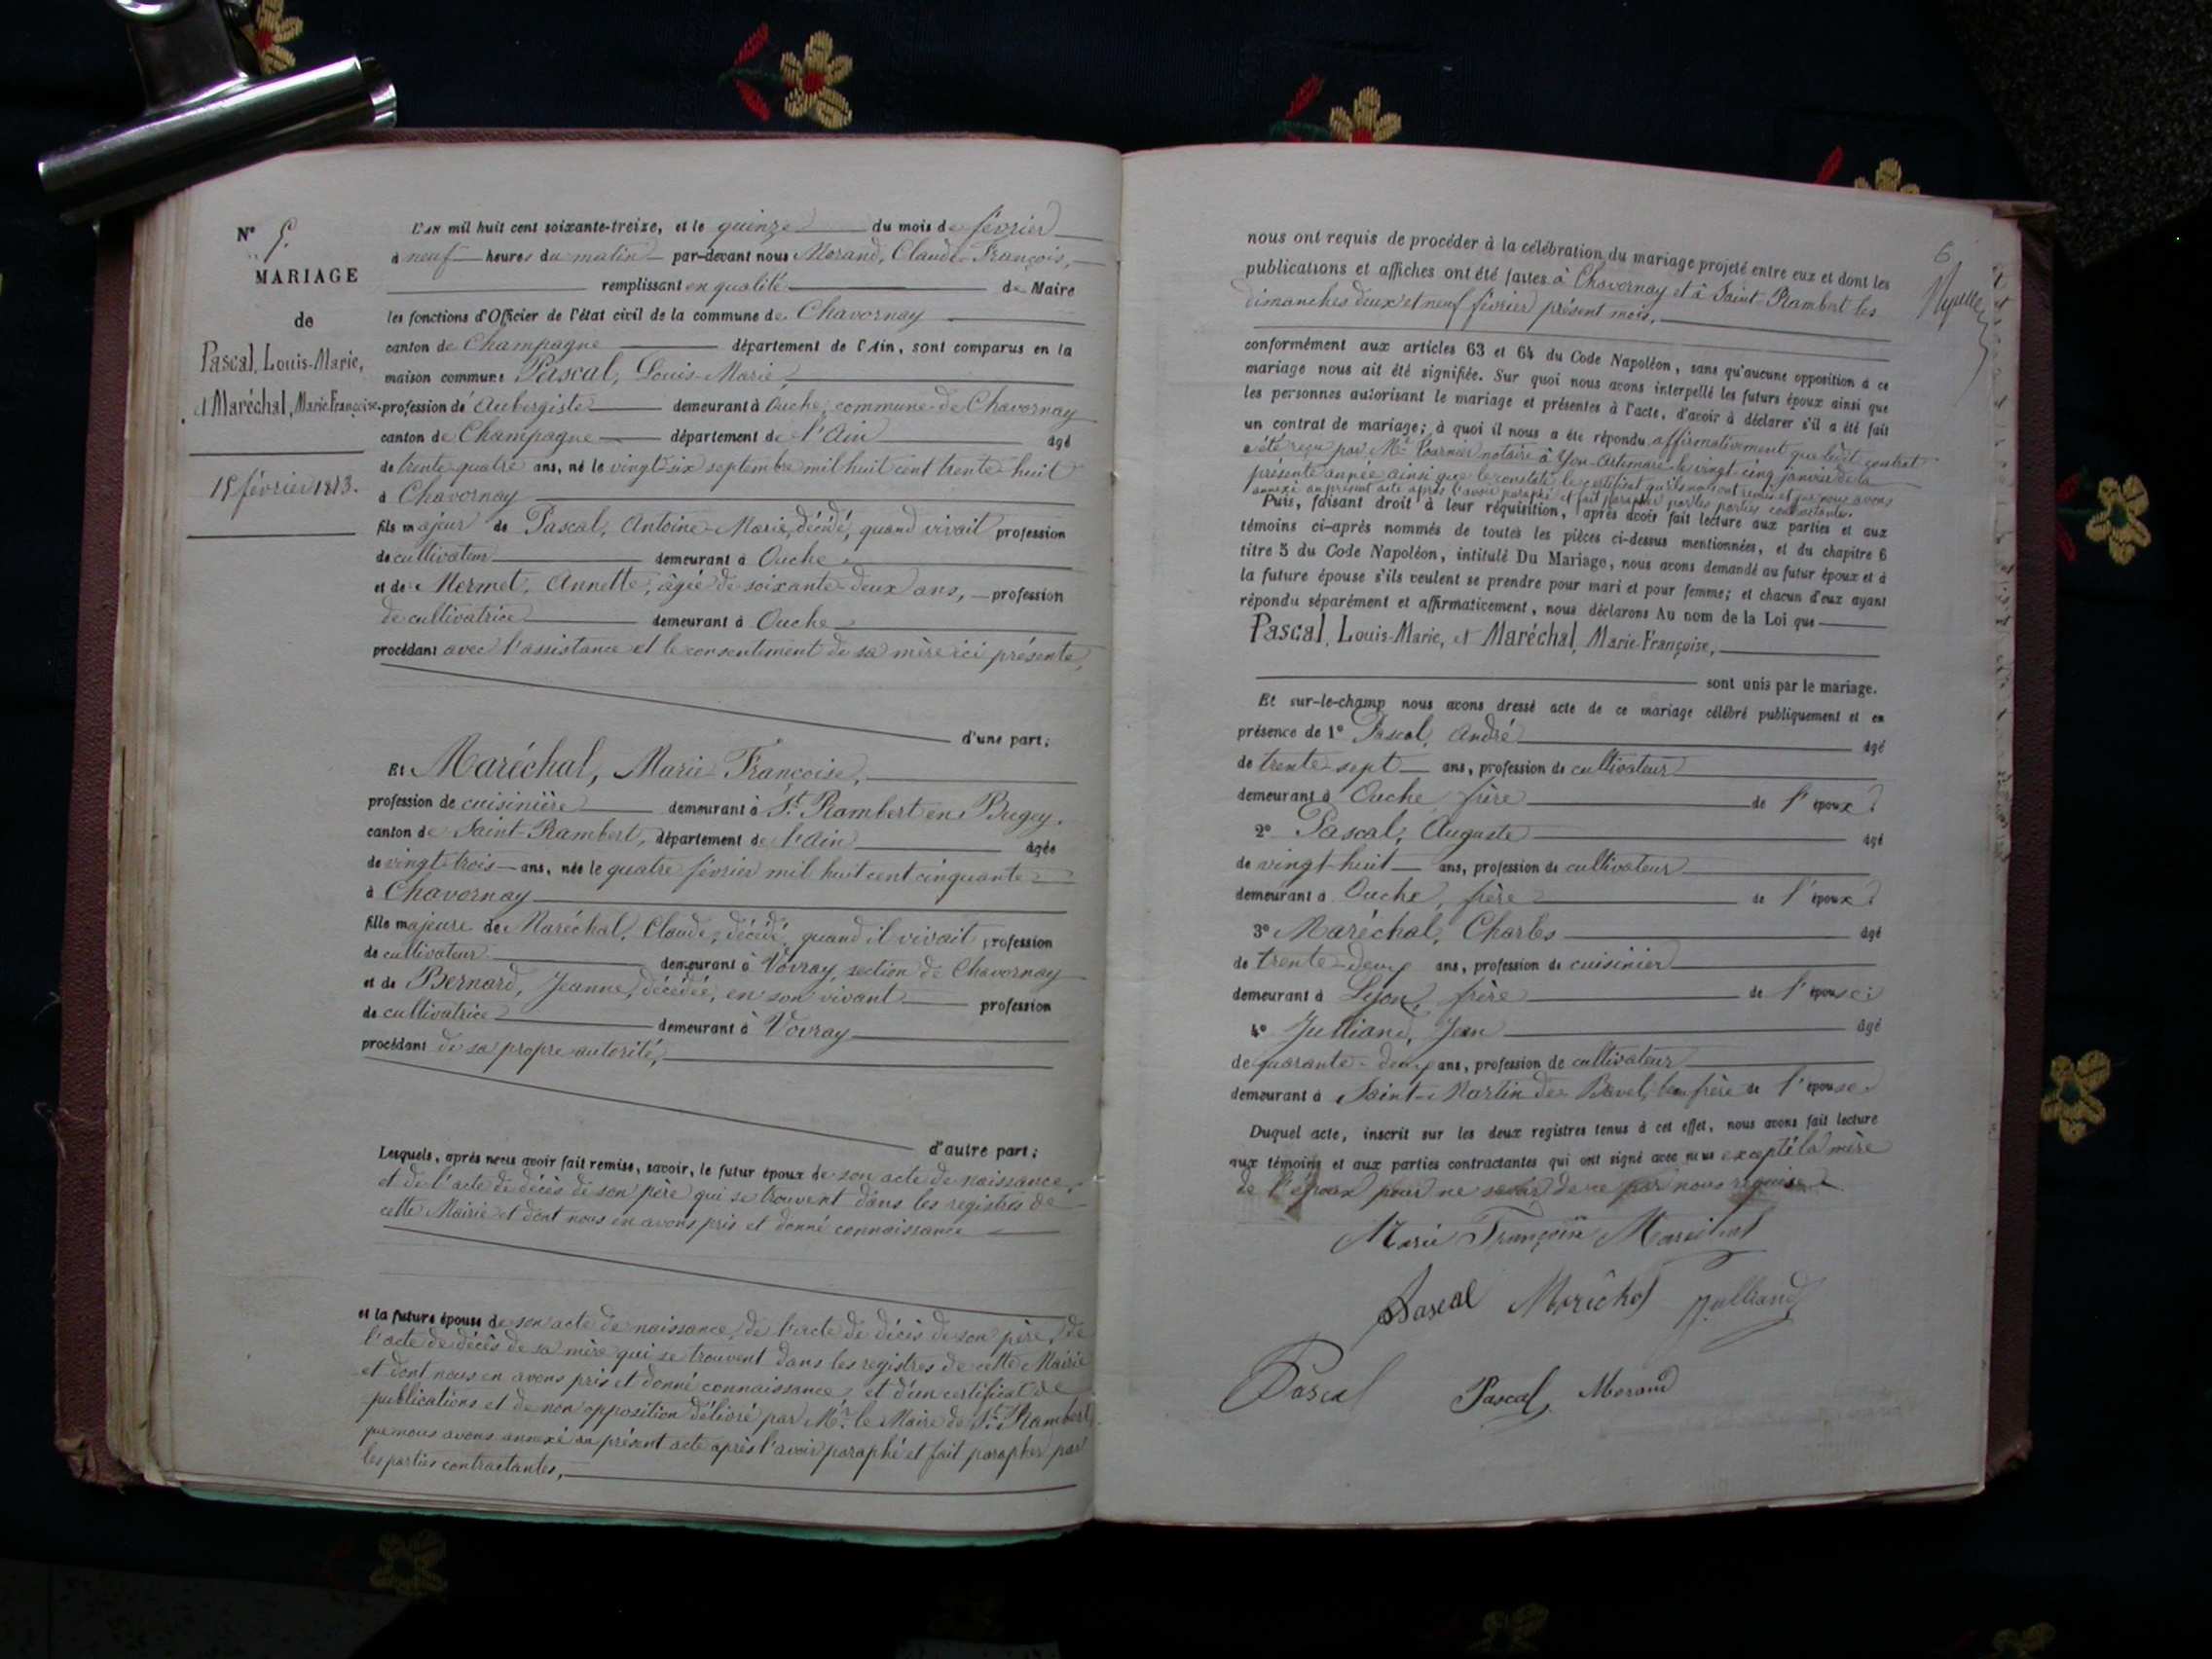 N° 5.
MARIAGE
de
Pascal, Louis-Marie,
et Maréchal, Marie-Françoise.
15 février 1873.
L'AN mil huit cent soixante-treize, et le quinze du mois de février
à neuf heures du matin par-devant nous Morand, Claude-François,
remplissant en qualité de Maire
les fonctions d'Officier de l'état civil de la commune de Chavornay
canton de Champagne département de l'Ain, sont comparus en la
maison commune Pascal, Louis-Marie,
profession de Aubergiste demeurant à Ouche, commune de Chavornay
canton de Champagne département de l'Ain âgé
de trente-quatre ans, né le vingt-six septembre mil huit cent trente-huit
à Chavornay
fils majeur de Pascal, Antoine-Marie, décédé, quand vivait profession
de cultivateur demeurant à Ouche
et de Mermet, Annette, âgée de soixante-deux ans, profession
de cultivatrice demeurant à Ouche
procédant avec l'assistance et le consentement de sa mère ici présente,
d'une part;
Et Maréchal, Marie-Françoise,
profession de cuisinière demeurant à St. Rambert en Bugey.
canton de Saint-Rambert, département de l'Ain âgée
de vingt-trois ans, née le quatre février mil huit cent cinquante
à Chavornay
fille majeure de Maréchal, Claude, décédé, quand il vivait profession
de cultivateur demeurant à Vovray, section de Chavornay
et de Bernard, Jeanne, décédée, en son vivant profession
de cultivatrice demeurant à Vovray
procédant de sa propre autorité,
d'autre part;
Lesquels, après nous avoir fait remise, savoir, le futur époux de son acte de naissance,
et de l'acte de décès de son père qui se trouvent dans les registres de
cette Mairie et dont nous en avons pris et donné connaissance
et la future épouse de son acte de naissance, de l'acte de décès de son père, de
l'acte de décès de sa mère qui se trouvent dans les registres de cette Mairie
et dont nous en avons pris et donné connaissance et d'un certificat de
publications et de non opposition délivré par Mr. le Maire de St. Rambert,
que nous avons annexé au présent acte après l'avoir paraphé et fait parapher par
les parties contractantes,
6
nous ont requis de procéder à la célébration du mariage projeté entre eux et dont les
publications et affiches ont été faites à Chavornay et à Saint-Rambert les
dimanches deux et neuf février présent mois,
conformément aux articles 63 et 64 du Code Napoléon, sans qu'aucune opposition à ce
mariage nous ait été signifiée. Sur quoi nous avons interpellé les futurs époux ainsi que
les personnes autorisant le mariage et présentes à l'acte, d'avoir à déclarer s'il a été fait
un contrat de mariage; à quoi il nous a été répondu affirmativement que ledit contrat
a été reçu par Me. notaire à Yon-Artemare le vingt cinq janvier de la
présente année ainsi que le constate le certificat qu'ils nous ont remis et que nous avons
annexé au présent acte après l'avoir paraphé et fait parapher par les parties contractantes.
Puis, faisant droit à leur réquisition, après avoir fait lecture aux parties et aux
témoins ci-après nommés de toutes les pièces ci-dessus mentionnées, et du chapitre 6
titre 5 du Code Napoléon, intitulé Du Mariage, nous avons demandé au futur époux et à
la future épouse s'ils veulent se prendre pour mari et pour femme; et chacun d'eux ayant
répondu séparément et affirmativement, nous déclarons Au nom de la Loi que
Pascal, Louis-Marie, et Maréchal, Marie-Françoise,
sont unis par le mariage.
Et sur-le-champ nous avons dressé acte de ce mariage célébré publiquement et en
présence de 1° Pascal, André âgé
de trente-sept ans, profession de cultivateur
demeurant à Ouche, frère de l'époux
2° Pascal, Auguste âgé
de vingt-huit ans, profession de cultivateur
demeurant à Ouche, frère de l'époux
3° Maréchal, Charles âgé
de trente-deux ans, profession de cuisinier
demeurant à Lyon, frère de l'épouse
4° Julliand, Jean âgé
de quarante-deux ans, profession de cultivateur
demeurant à Saint-Martin de Bavel, beau frère de l'épouse
Duquel acte, inscrit sur les deux registres tenus à cet effet, nous avons fait lecture
aux témoins et aux parties contractantes qui ont signé avec nous excepté la mère
de l'époux pour ne savoir de ce par nous requise
Marie Françoise Maréchal
Pascal Maréchal Julliand
Pascal Pascal, Morand